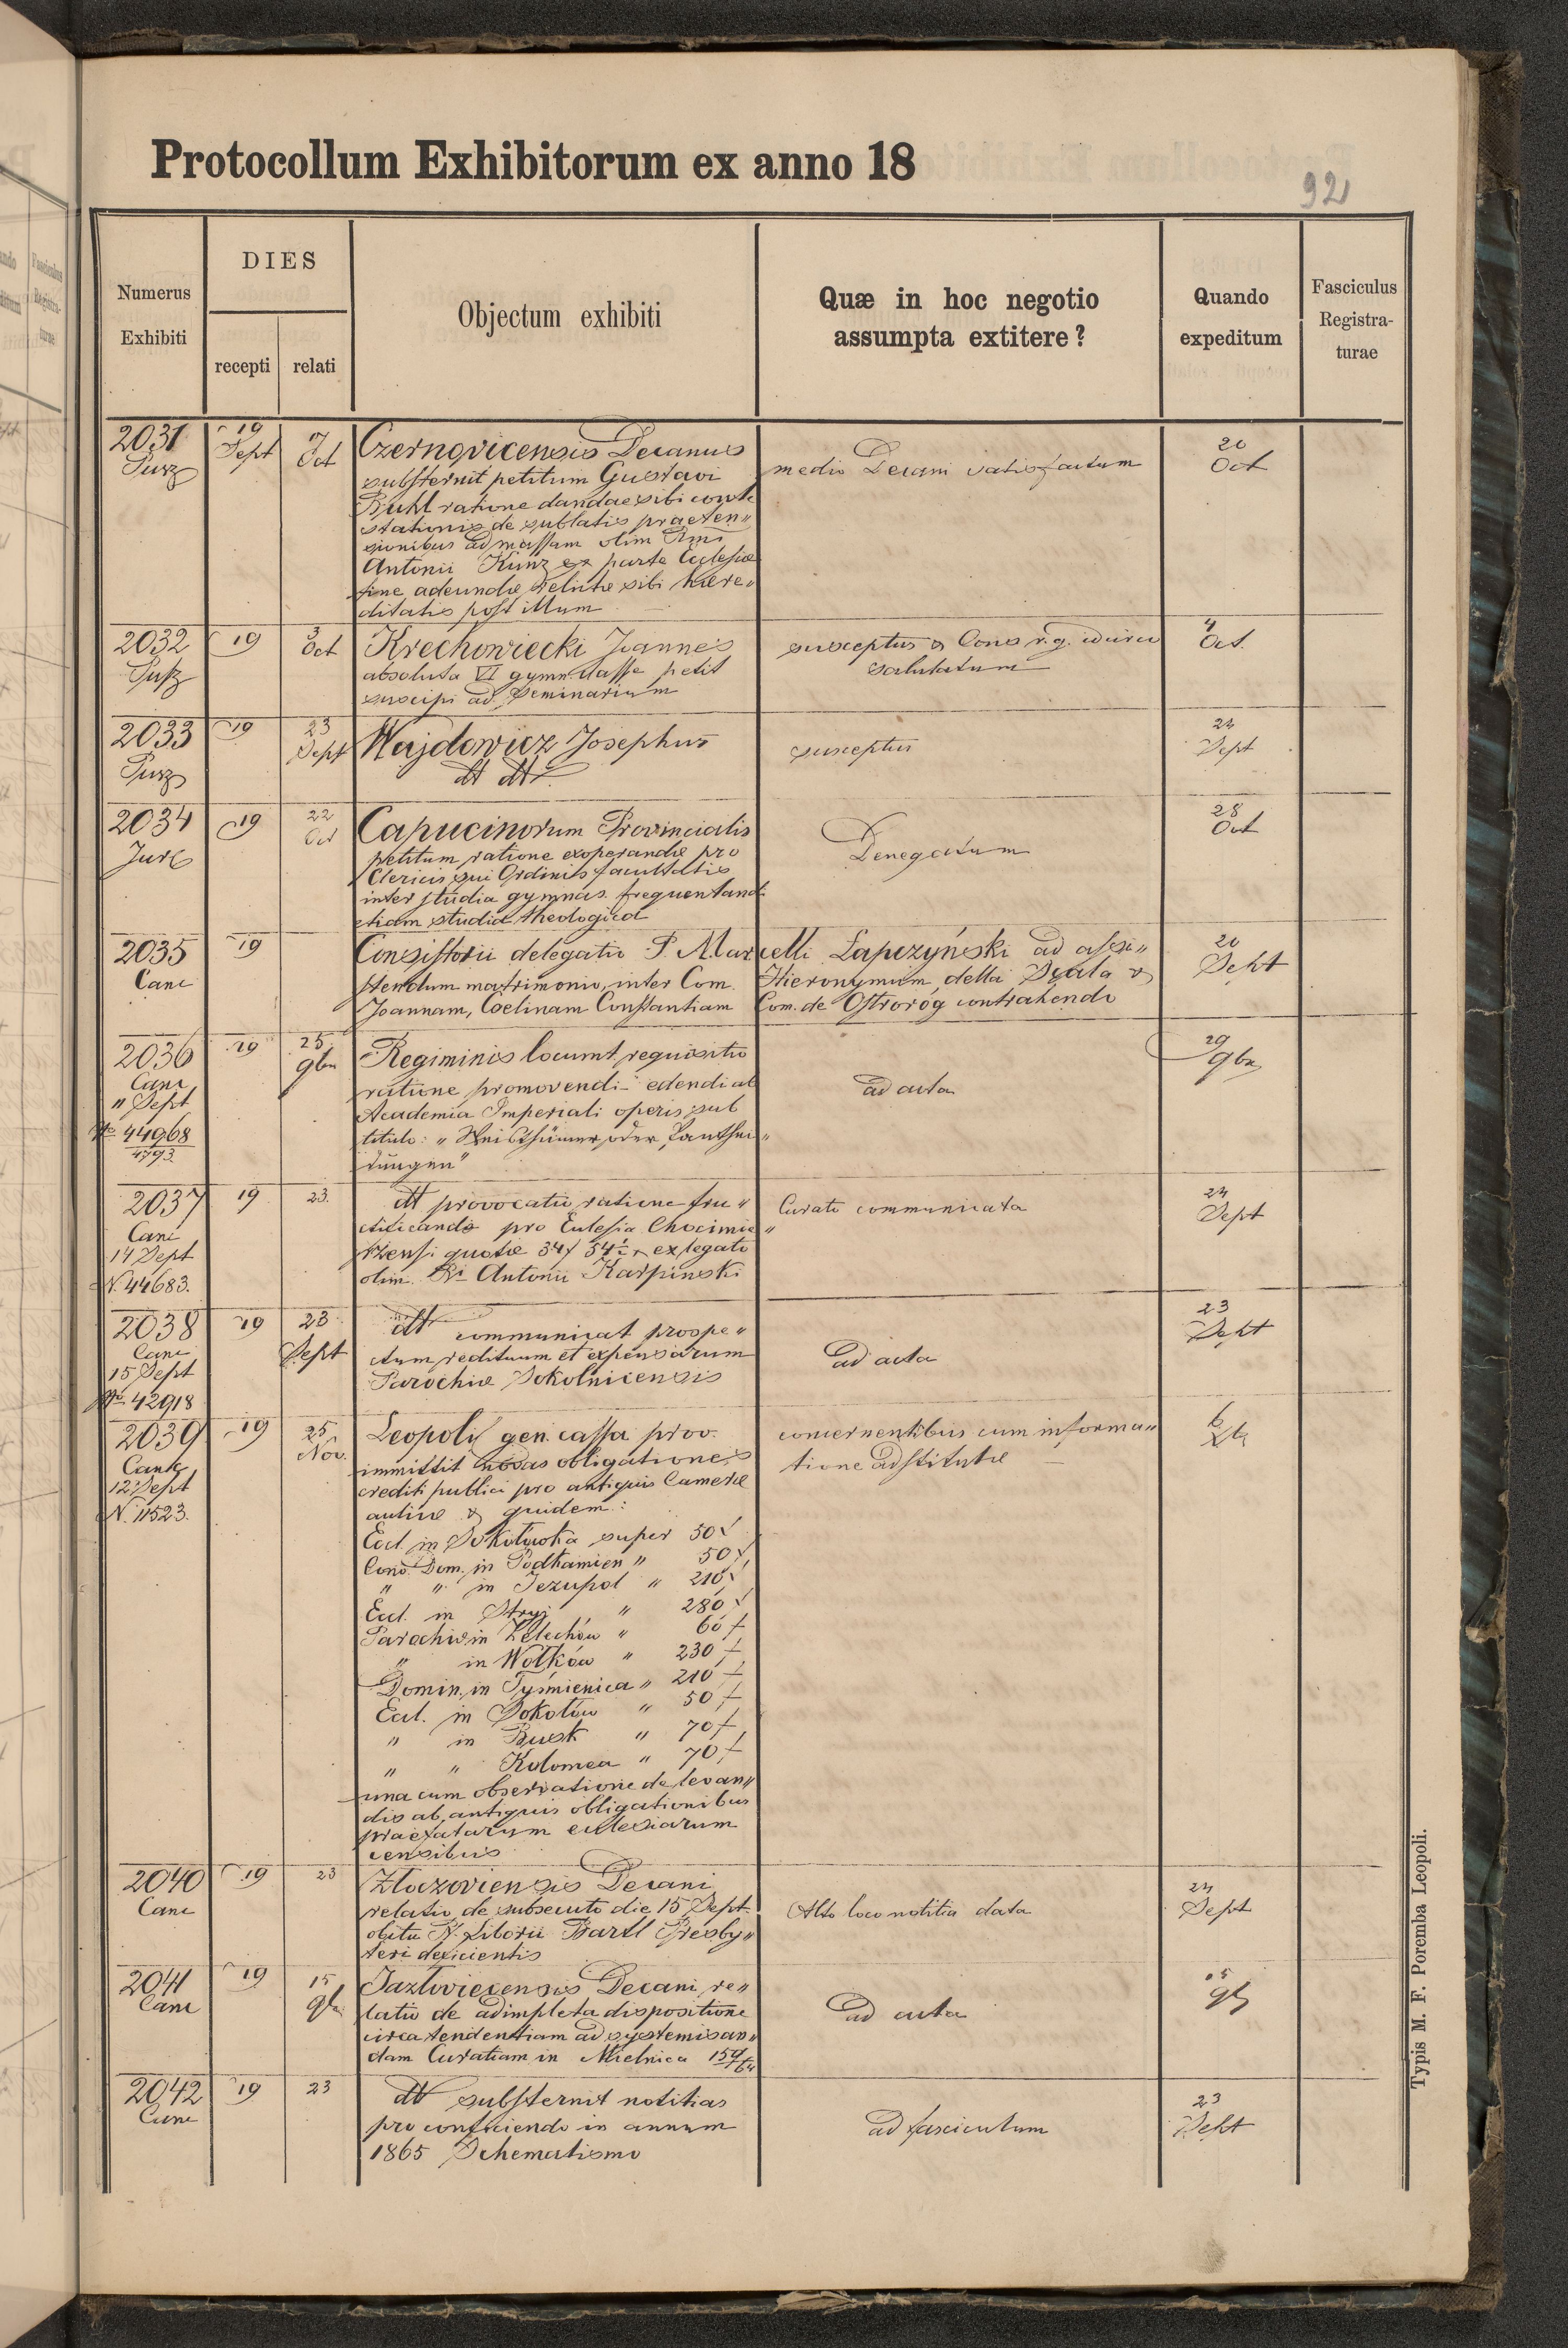 Protocollum Exhibitorum ex anno 18
92
Numerus Exhibiti
DIES
recepti
relati
Objectum exhibiti
Quæ in hoc negotio assumpta extitere?
Quando expeditum
Fasciculus Registra-turae
2031
19 Sept
7 Oct
Czernovicensis Decanus
substernit petitum Gustavi
Buhl ratione dandae sibi conte
stationis de sublatis praeten„
sionibus ad massam olim Rmi
Antonii Kunz ex parte Eclesiae
fine adeundae relictae sibi haere„
ditatis post illum
medio Decani satisfactum
20 Oct
2032
19
3 Oct
Krechowiecki Joannes
absoluta VI gymn. classe petit
suscipi ad Seminarium
susceptus & Cons r.g.
salutatum
4 Oct.
2033
19
23 Sept
Wajdowicz Josephus
dt dto
susceptus
24 Sept
2034
19
22 Oct
Capucinorum Provincialis
petitum ratione exoperandae pro
Clericis sui Ordinis facultatis
inter studia gymnas. frequentandi
etiam studia theologica
Denegatum
28 Oct
2035
Canc
19
Consistorii delegatio P. Marcelli Lapczyński ad assi„
stendum matrimonio, inter Com. Hieronymum della Scala &
Joannam, Coelinam Constantiam Com. de Ostroróg contrahendo
20 Sept
2036
Canc
„ Sept
No 44968
4793
19
25 9bris
Regiminis locumt. requisitio
ratione promovendi edendi ab
Academia Imperiali operis sub
titulo: „ Weisthümer oder Panthei„
dungen"
ad acta
29 9br
2037
Canc
14 Sept
N. 44683.
19
23.
dt provocatio ratione fru„
ctificandae pro Eclesia Chocimie„
rzensi quotae 34f 54½ x ex legato
olim Rdi Antonii Karpinski
Curato communicata
24 Sept
2038
Canc
15 Sept
No 42918
19
23 Sept
dt communicat prospe„
ctum redituum et expensarum
Parochiae Sokolnicensis
ad acta
23 Sept
2039
Canc
12 Sept
N. 11523.
19
25 Nov.
Leopoli gen. cassa prov.
immittit novas obligationes
crediti publici pro antiquis Camerae
aulicae & quidem:
Eccl. in Sokołowka super 50 f
Conv. Dom. in Podkamien „ 50 f
„ „ in Jezupol „ 210 f
Eccl. in Stryj „ 280 f
Parochiae in Zelechów „ 60 f
„ in Wołków „ 230 f
Domin. in Tyśmienica „ 210 f
Eccl. in Sokołów „ 50 f
„ in Busk „ 70 f
„ „ Kolomea „ 70 f
una cum observatione de levan„
dis ab antiquis obligationibus
praefatarum ecclesiarum
censibus
concernentibus cum informa„
tione adstitutae
6 Xbr
2040
Canc
19
23
Złoczoviensis Decani
relatio de subsecuto die 15 Sept.
obitu R. Liborii Bartl Presby„
teri deficientis
Alto loco notitia data
24 Sept
2041
Canc
19
15 9br
Jazłoviecensis Decani re„
latio de adimpleta dispositione
circa tendentiam ad systemisan„
dam Curatiam in Mielnica 159/64
ad acta
15 9b
2042
Canc
19
23
dt substernit notitias
pro conficiendo in annum
1865 Schematismo
ad fasciculum
23 Sept
Typis M. F. Poremba Leopoli.